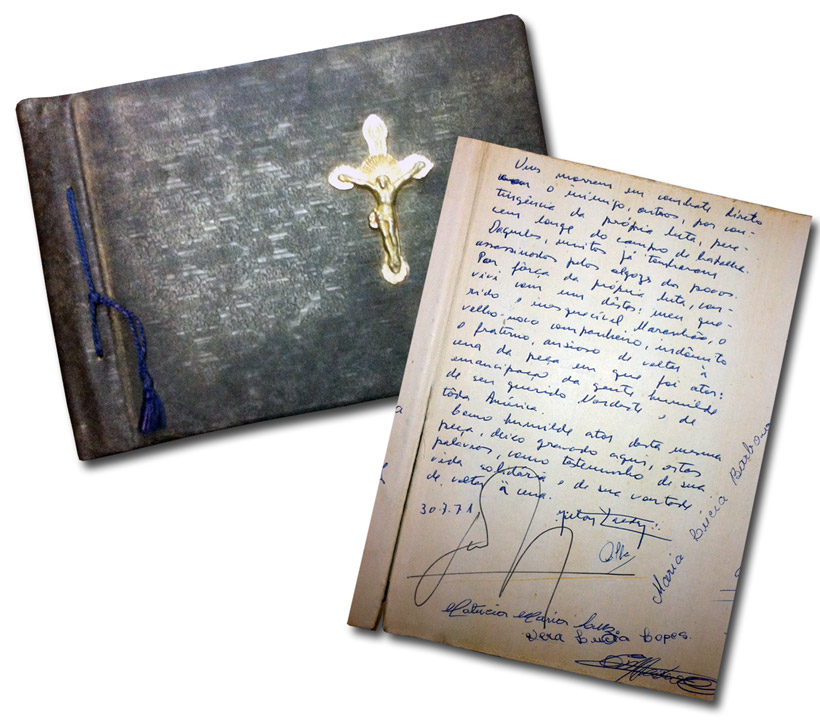 Uns morrem em combate direto
com o inimigo, outros, por con-
tingência da própria luta, pere-
cem longe do campo de batalha.
Daqueles, muitos já tombaram
assassinados pelos algozes dos povos.
Por fôrça da própria luta, con-
vivi com um dêstes: meu que-
rido e inesquecível Maranhão, o
velho-novo companheiro, indômito
e fraterno, ansioso de voltar à
cena da peça em que foi ator:
emancipação da gente humilde
de seu querido Nordeste e de
tôda América.
Como humilde ator desta mesma
peça, deixo gravado aqui, estas
palavras, como testemunho de sua
vida solidária e de sua vontade
de voltar à cena.
30.7.71
Maria Lúcia Barbosa
Patrícia Maria
Vera Lúcia Lopes.